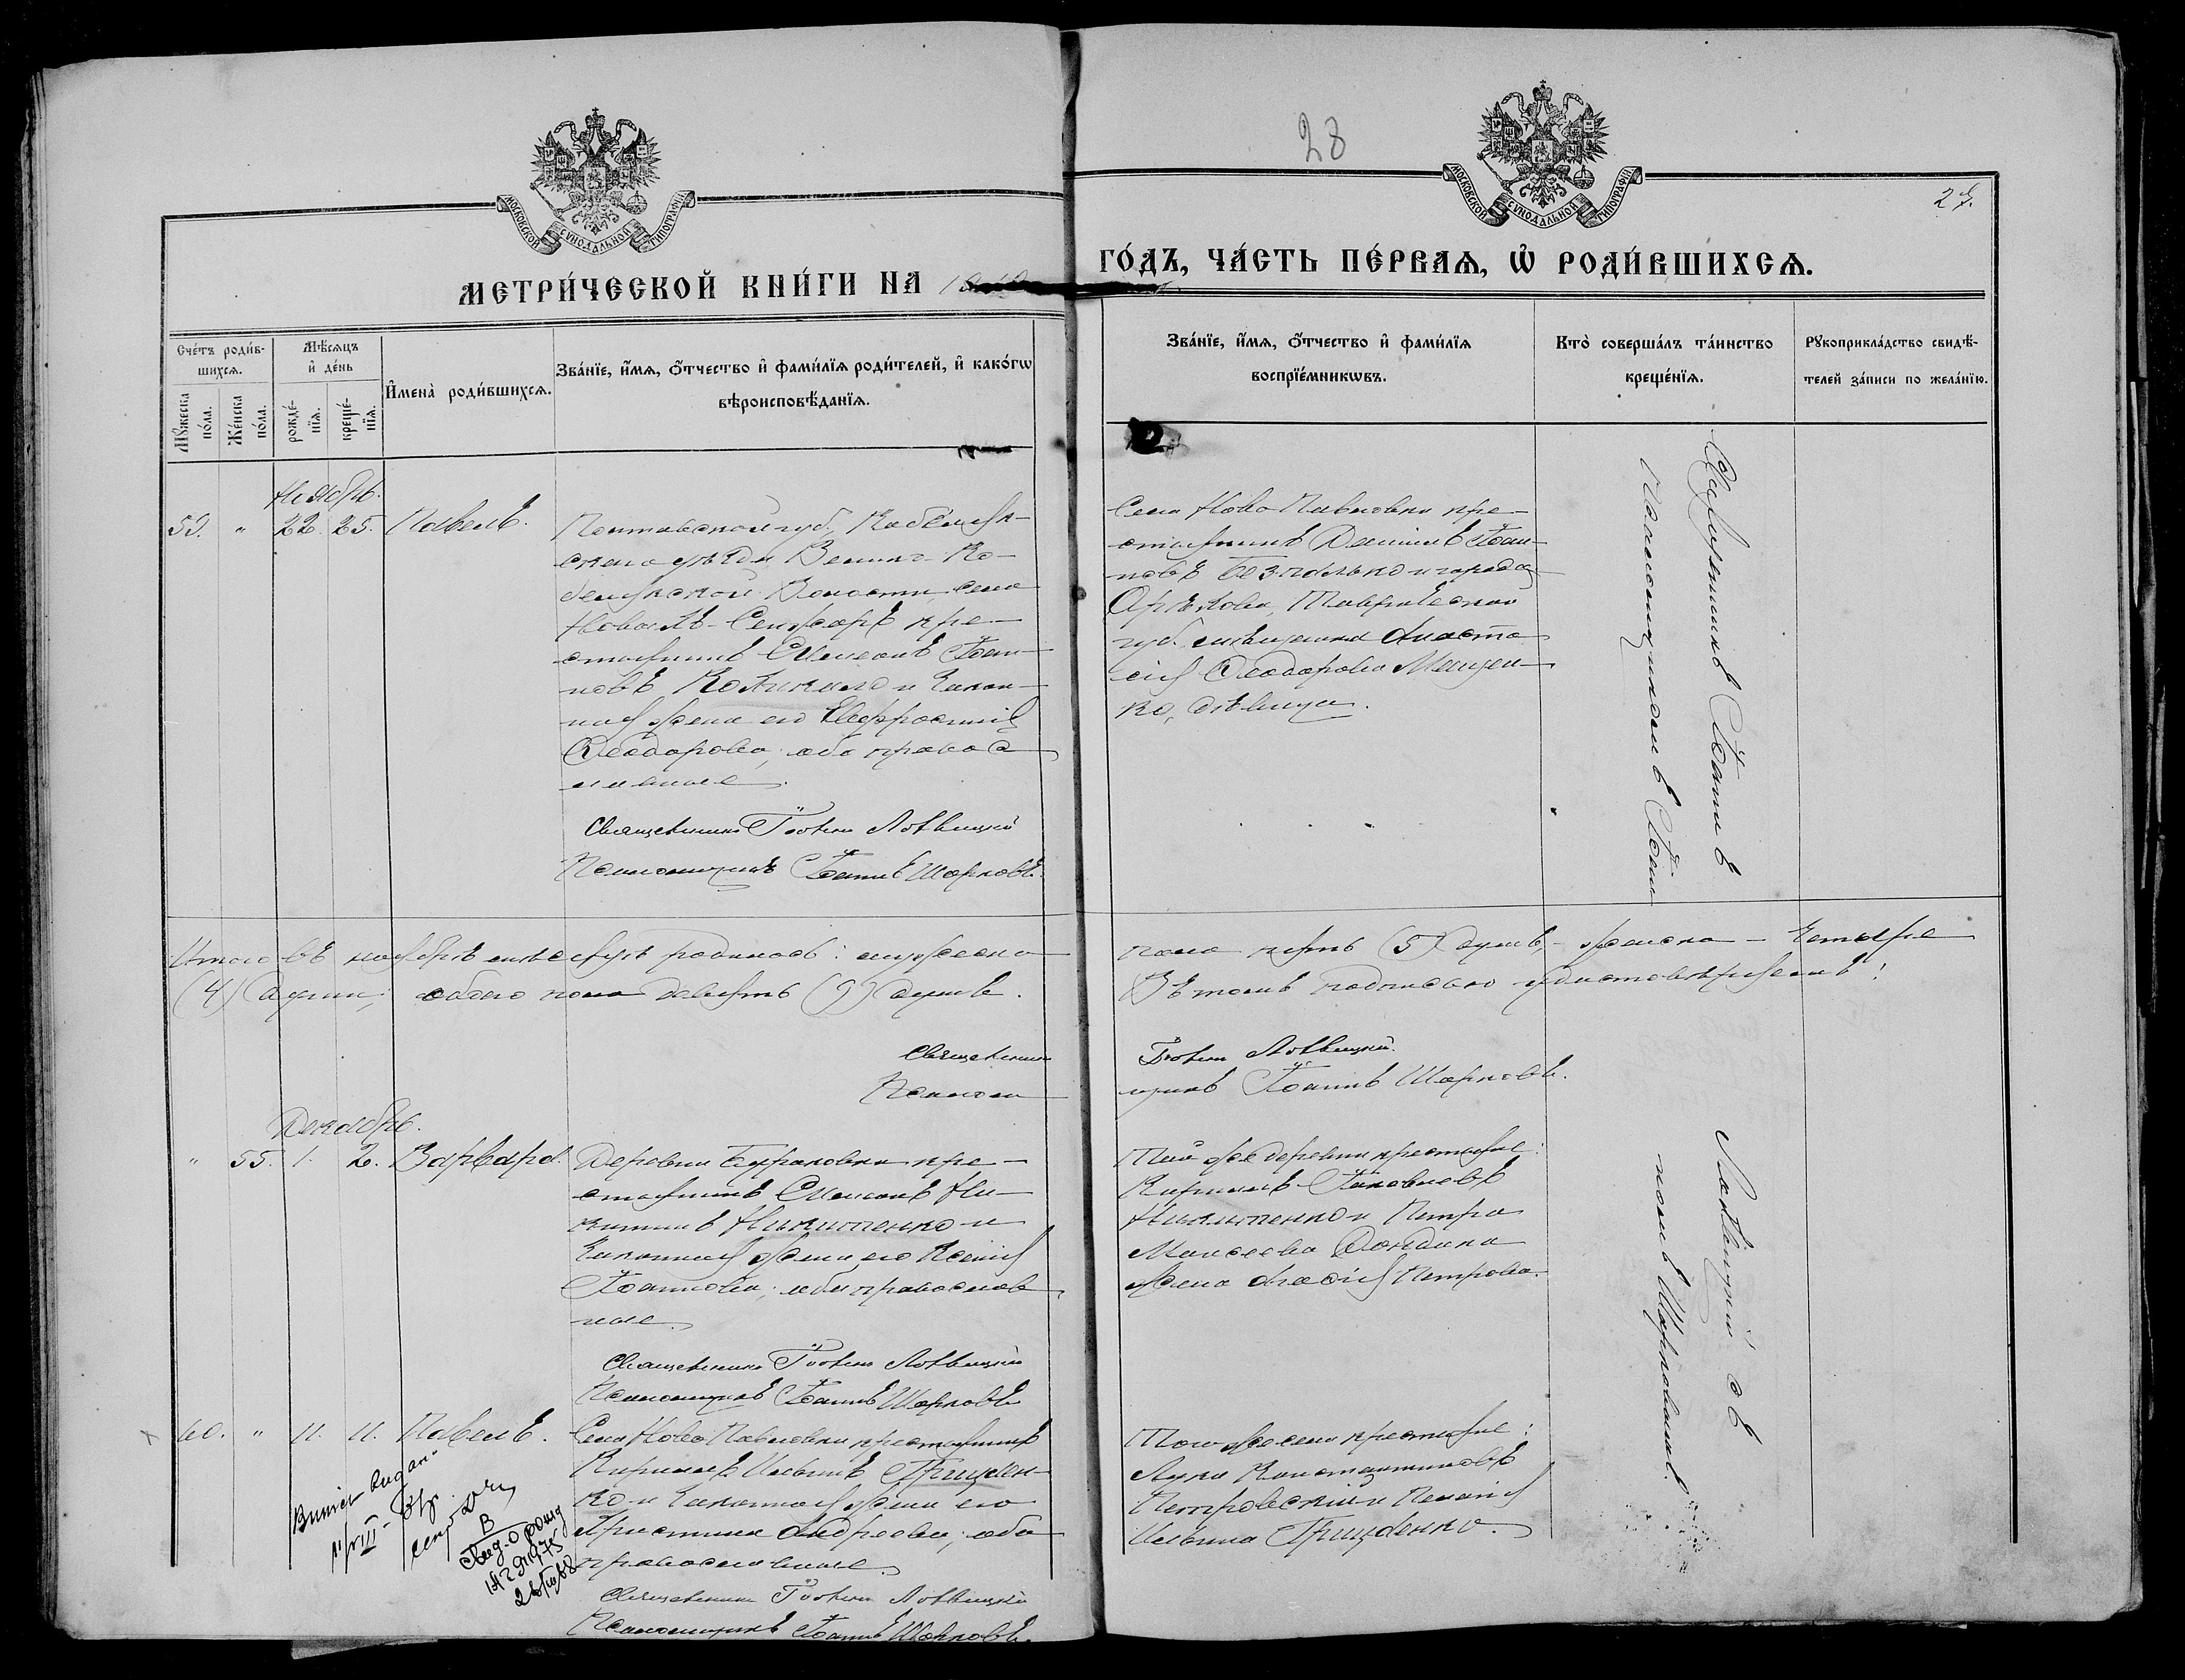 28
27.
МОСКОВСКОЙ СѴНОДАЛЬНОЙ ТИПОГРАФІИ
МОСКОВСКОЙ СѴНОДАЛЬНОЙ ТИПОГРАФІИ
МЕТРИ́ЧЕСКОЙ КНИ́ГИ НА
ГО́ДЪ, ЧА́СТЬ ПЕ́РВАѦ, Ѡ҆ РОДИ́ВШИХСѦ.
Сче́тъ роди́в-
шихсѧ.
Мꙋжеска
по́ла.
Же́нска
по́ла.
Мѣ́сѧцъ
и҆ де́нь
рожде́-
нїѧ.
креще́-
нїѧ.
И҆мена̀ роди́вшихсѧ.
Зва́нїе, и҆́мѧ, ѻ҆́тчество и҆ фами́лїѧ роди́телей, и҆ како́гѡ
вѣроисповѣ́данїѧ.
Зва́нїе, и҆́мѧ, ѻ҆́тчество и҆ фами́лїѧ
воспрїе́мникѡвъ.
Кто̀ соверша́лъ та́инство
креще́нїѧ.
Рꙋкоприкла́дство свидѣ́-
телей за́писи по жела́нїю.
Ноябрь.
59. " 22. 25. Павелъ.
Полтавской губ. Кобеляк-
скаго уѣзда Велико-Ко-
белякской Волости, села
Новыхъ-Сенжаръ кре-
стьянинъ Симеонъ Іоан-
новъ и закон-
ная жена его Евфросинія
Ѳеодорова, оба право с
лавные.
Священникъ Іовъ Лотвицкій
Псаломщикъ Іоаннъ Шарповъ.
Села Ново Павловки кре-
стьянинъ Даніилъ Іоан-
новъ Безпалько и города
Орѣхова, Таврической
губ. мѣщанка Анаста
сія Ѳеодорова Мащен-
ко, дѣвица.
Священникъ
Псаломщикомъ Іоан
Итого въ ноябрѣ мѣсяцѣ родилось: мужеска
пола пять (5) душъ, женска – четыре
(4) души, обоего пола девять (9) душъ.
Въ томъ подписью удостовѣряемъ:
Священникъ Іовъ Лотвицкій.
Псаломщикъ Іоаннъ Шарповъ.
Декабрь.
" 55. 1. 2. Варвара.
Деревни Бураковки кре-
стьянинъ Симеонъ Ни-
китинъ Никитенко и
законная жена его Ксенія
Іоаннова, оба православ
ные.
Священникъ Іовъ Лотвицкій
Псаломщикъ Іоаннъ Шарповъ
Той же деревни крестьяне:
Кириллъ Іаковлевъ
Никитенко и Петра
Моисеева Дондика
жена Анасія Петрова.
Лотвицкій съ
номъ Шарповымъ.
60. " 11. 11. Павелъ.
Села Ново Павловки крестьянинъ
Кириллъ Ильинъ Гриценн-
ко и законная жена его
Христина Андреева, оба
православные.
Священникъ Іовъ Лотвицкій
Псаломщикъ Іоаннъ Шарповъ.
Того же села крестьяне:
Лука Константиновъ
Петровскій и Пелагія
Ильина Гриценко.